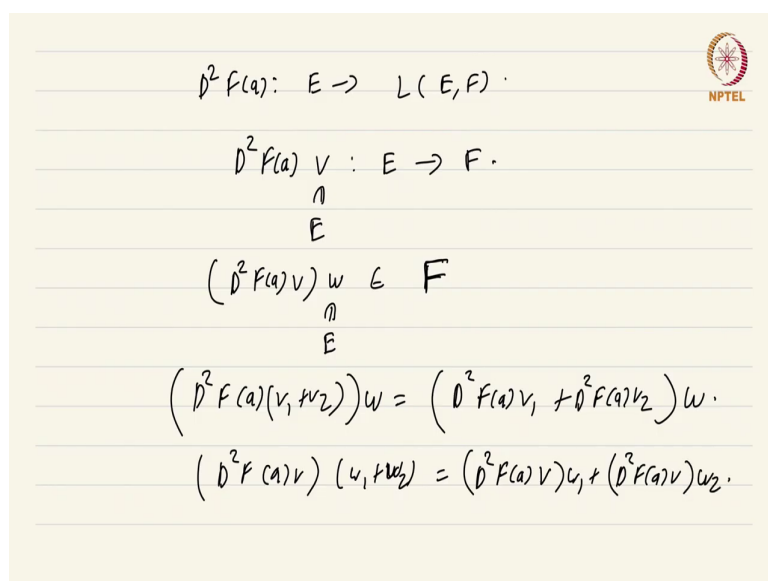 NPTEL
D² F(a) : E → L(E, F) .
D² F(a) v : E → F .
∩
E
(D² F(a) v) w ∈ F
∩
E
(D² F(a)(v₁ + v₂)) w = (D² F(a) v₁ + D² F(a) v₂) w .
(D² F(a) v) (w₁ + w₂) = (D² F(a) v) w₁ + (D² F(a) v) w₂ .